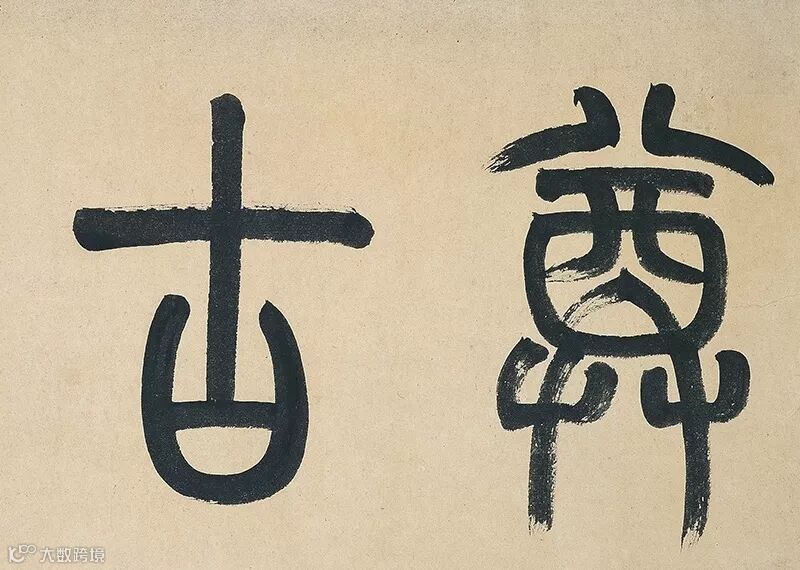 尊古
大数跨境